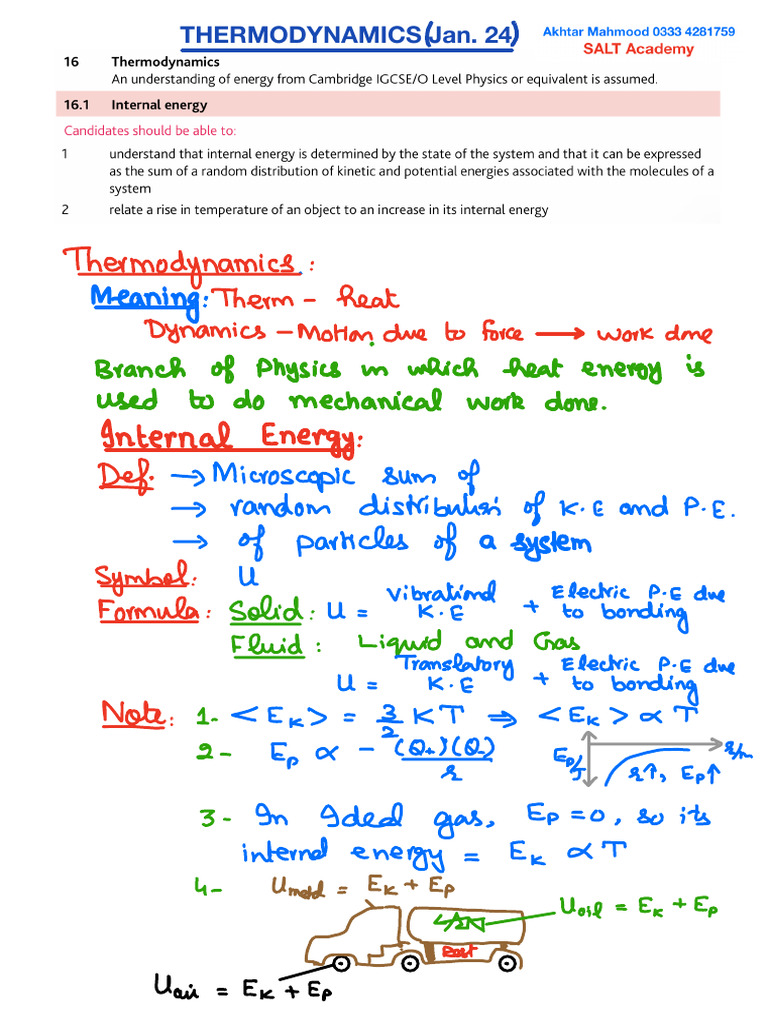 THERMODYNAMICS (Jan. 24)
Akhtar Mahmood 0333 4281759
SALT Academy
16 Thermodynamics
An understanding of energy from Cambridge IGCSE/O Level Physics or equivalent is assumed.
16.1 Internal energy
Candidates should be able to:
1 understand that internal energy is determined by the state of the system and that it can be expressed
as the sum of a random distribution of kinetic and potential energies associated with the molecules of a
system
2 relate a rise in temperature of an object to an increase in its internal energy
Thermodynamics:
Meaning: Therm - heat
Dynamics - Motion due to force → work done
Branch of Physics in which heat energy is
used to do mechanical work done.
Internal Energy:
Def. → Microscopic sum of
→ random distribution of K.E and P.E.
→ of particles of a system
Symbol: U
Formula: Solid: U = Vibrational K.E + Electric P.E due to bonding
Fluid: Liquid and Gas
U = Translatory K.E + Electric P.E due to bonding
Note: 1- <E_K> = 3/2 KT ⇒ <E_K> ∝ T
2- E_p ∝ - (Q+)(Q-)/r
E_p/J r/m
r↑, E_p↑
3- In Ideal gas, E_p = 0, so its
internal energy = E_K ∝ T
4- U_metal = E_K + E_p
U_oil = E_K + E_p
U_air = E_K + E_p